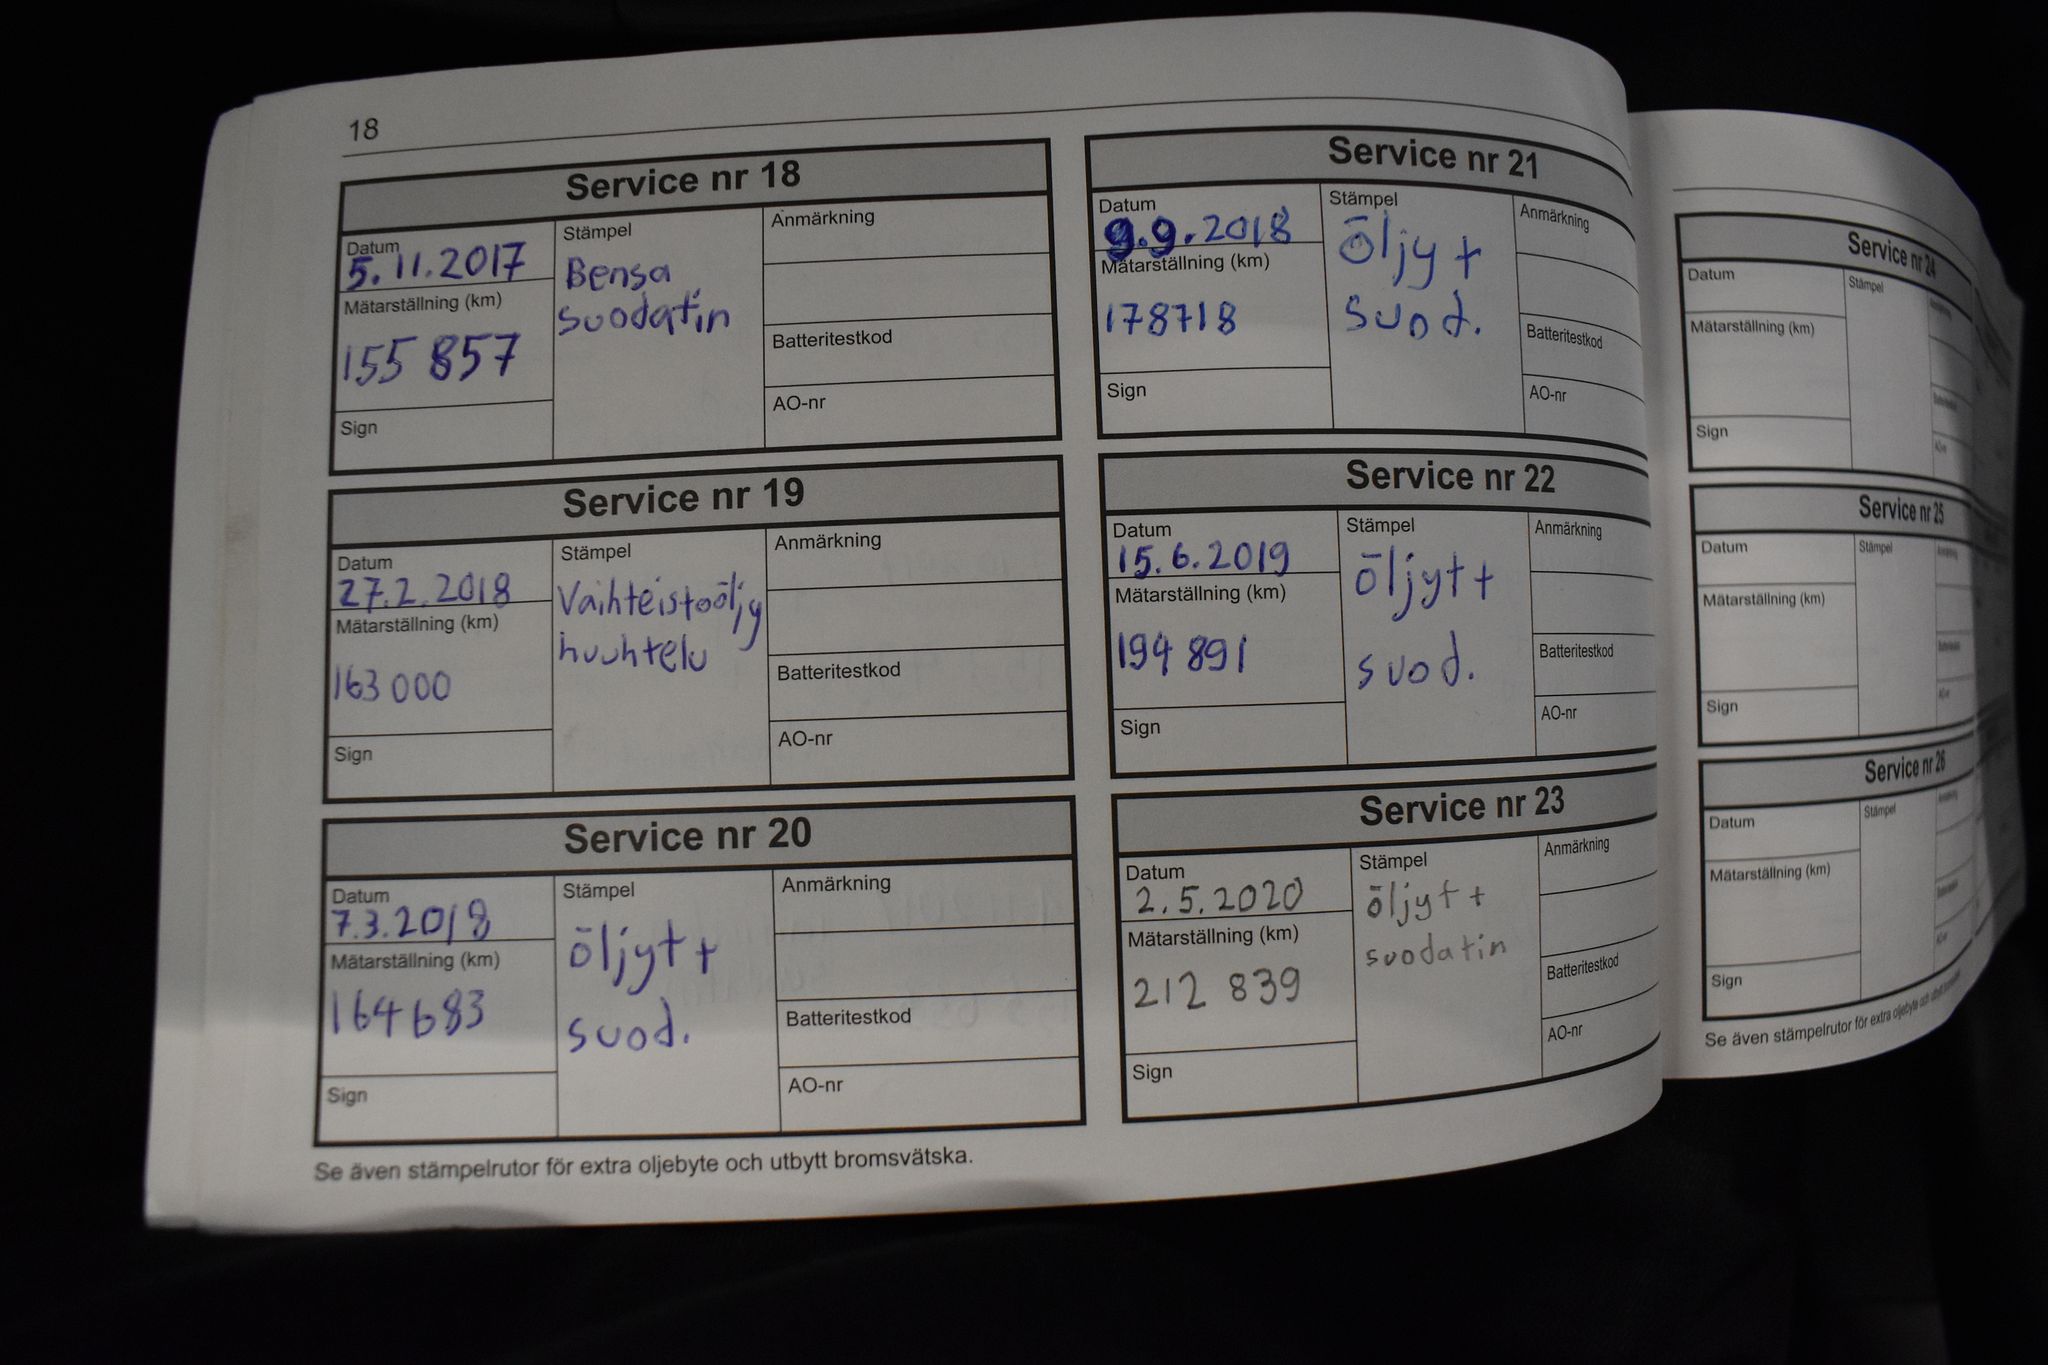 18
Service nr 18
Datum
5.11.2017
Mätarställning (km)
155 857
Sign
Stämpel
Bensa
suodatin
Anmärkning
Batteritestkod
AO-nr
Service nr 19
Datum
27.2.2018
Mätarställning (km)
163 000
Sign
Stämpel
Vaihteistoöljy
huuhtelu
Anmärkning
Batteritestkod
AO-nr
Service nr 20
Datum
7.3.2018
Mätarställning (km)
164683
Sign
Stämpel
öljyt +
suod.
Anmärkning
Batteritestkod
AO-nr
Se även stämpelrutor för extra oljebyte och utbytt bromsvätska.
Service nr 21
Datum
9.9.2018
Mätarställning (km)
178718
Sign
Stämpel
öljy +
suod.
Anmärkning
Batteritestkod
AO-nr
Service nr 22
Datum
15.6.2019
Mätarställning (km)
194 891
Sign
Stämpel
öljyt +
suod.
Anmärkning
Batteritestkod
AO-nr
Service nr 23
Datum
2.5.2020
Mätarställning (km)
212 839
Sign
Stämpel
öljyt +
suodatin
Anmärkning
Batteritestkod
AO-nr
Service nr 24
Datum
Mätarställning (km)
Sign
Stämpel
Service nr 25
Datum
Mätarställning (km)
Sign
Stämpel
Service nr 26
Datum
Mätarställning (km)
Sign
Stämpel
Se även stämpelrutor för extra oljebyte och utbytt